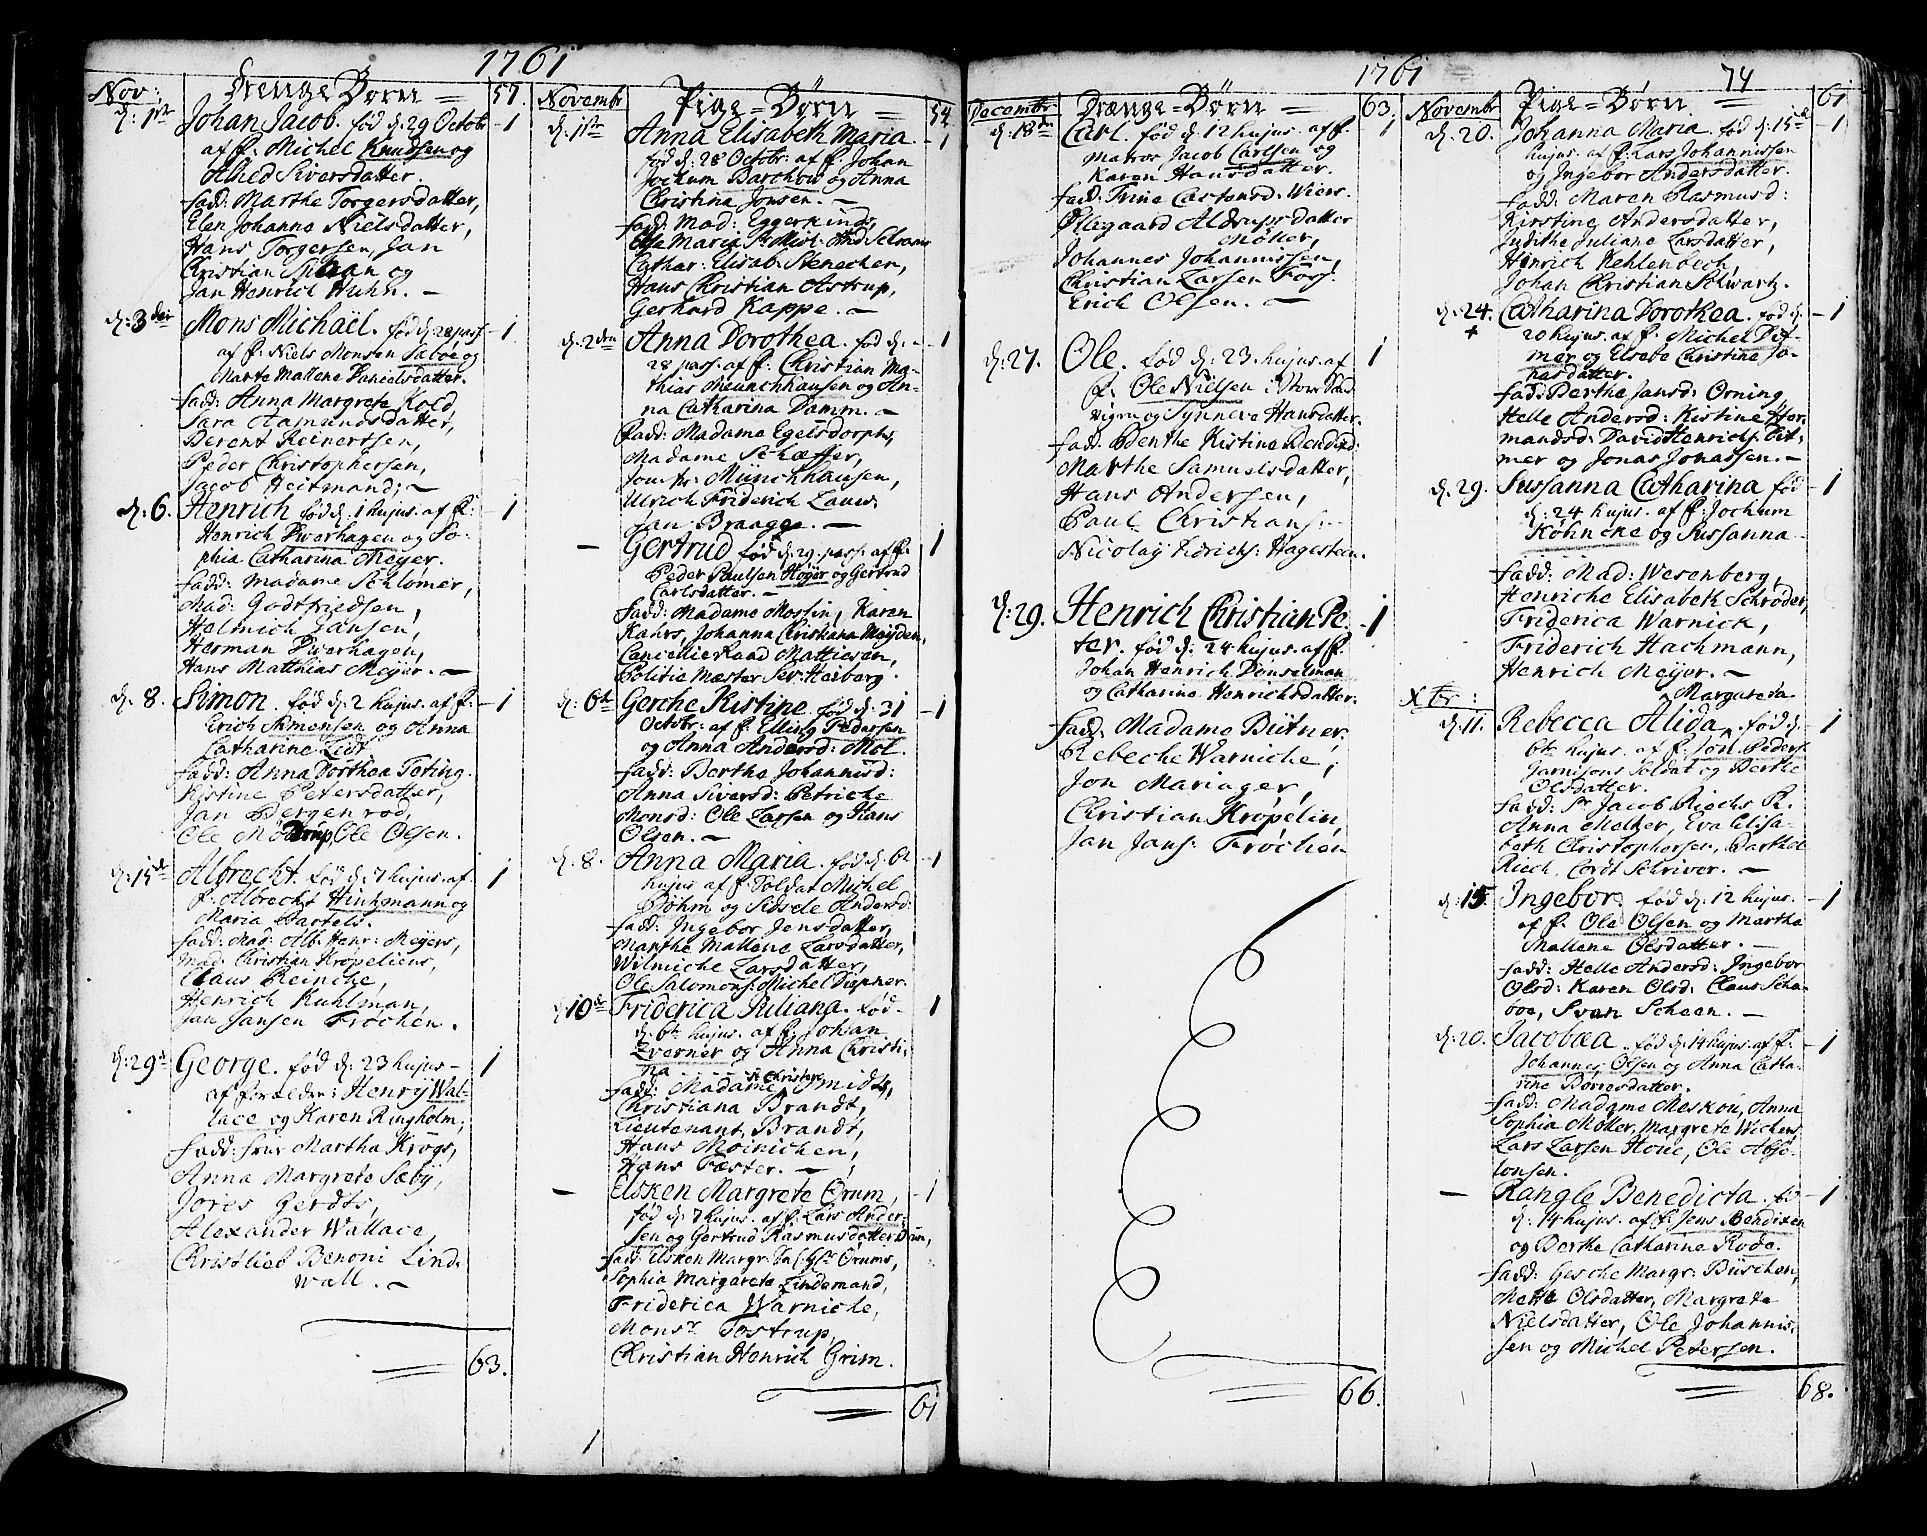 1761
Nov: Drenge Børn = 57.
d: 1ste Johan Jacob. fød d: 29 Octobr -1
af f: Michel Knudsen og
Ahed Siversdatter.
fadd: Marthe Torgersdatter,
Elen Johanna Nielsdatter,
Hans Torgersen, Jan
Christian og
Jan Henrich Huhn. —
d: 3die Mons Michaël. fød d: 28 pass: -1
af f: Niels Monsen Sæbøe og
Marte Mallene Danielsdatter.
fadd: Anna Margrete Kold,
Sara Aamundsdatter,
Berent Reinertsen,
Peder Christophersen,
Jacob Heitmand; —
d: 6. Henrich fød d: 1 hujus. af f: -1
Henrich Dverhagen og So-
phia Catharina Meyer.
fadd: Madame Schlømer,
Mad: Godtfriedsen,
Helmich Jansen,
Herman Dverhagen,
Hans Matthias Meyer. —
d: 8. Simon. fød d: 2 hujus. af f: -1
Erich Simensen og Anna
Catharine Lidt
fadd: Anna Dorthea Toting.
Kistine Petersdatter,
Jan Bergen rod,
Ole Møltrup, Ole Olsen.
d: 15de Albrecht. fød d: 7 hujus. af 1
f. Albrecht Hinkmann og
Maria Bartels.
fadd: Mad: Alb: Henr: Meyers,
Mad: Christian Kropeliens,
Claus Reinche,
Henrich Kuhlman,
Jan Jansen Frøchen.
d: 29d George. fød d: 23 hujus - 1
af forældre: Henrÿ Wal-
lace og Karen Ringholm;
fadd: frue Martha Krogs,
Anna Margrete Sæbÿ,
Jores Gerdts,
Alexander Wallace,
Christlieb Benoni Lind.
wall. —
63.
Novembr Pige = Børn = 54
d: 1ste Anna Elisabeth Maria. -1
fød d: 28 Octobr: af f: Johan
Jochum Barchow og Anna
Christina Jonsen. —
fadd: Mad: Eggerkinds,
Else Maria Sr Mist: And Schrams
Cathar: Elisab: Stenechen,
Hans Christian Astrup,
Gerhard Kappe. —
d: 2den Anna Dorothea. fød d: - -1
28 pass: af f: Christian Ma-
thias Meunchhausen og An-
na Catharina Damm. —
fadd: Madame Egelsdorph,
Madame Schæffer,
Jomfr: Münchhausen,
Ulrich Friderich Lauw.
Jan Braagge. —
— Gertrud fød d: 29. pass: af f: 1
Peder Paulsen Høyer og Gertrud
Carlsdatter. —
fadd: Madame Mossin, Karen
Kahrs, Johanna Christiana Meyden,
Cancellie Raad Mattiesen,
Politie Mæster Sev: Heiberg.
d: 6te Gerche Kistine. fød d: 31 -1
Octobr: af f: Elling Pedersen
og Anna Andersd: Mol.
fadd: Berthe Johannisd:
Anna Siversd: Petriche
Monsd: Ole Larsen og Hans
Olsen. —
d: 8. Anna Maria. fød d: 6te -1
hujus af f: Soldat Michel
Bøhm og Sidsele Andersd:
fadd: Ingebor Jensdatter,
Marthe Mallene Larsdatter,
Wilmiche Larsdatter,
Ole Salomons: Michel Diepner.
d: 10de Friderica Juliana. fød- 1
d: 6te hujus. af f: Johan
Zverner og Anna Christi-
na
fadd: Madame Sr Christers Smidts,
Christiana Brandt,
Lieutenant Brandt,
Hans Moinichen,
Hans Fæster. —
— Elsken Margrete Ørum, -1
fød d: 7 hujus. af f: Lars Ander-
sen og Gertrud Rasmusdatter Ørum,
fadd: Elsken Margr: Ørums,
Sophia Margarete Lindemand,
Friderica Warniche,
Monsr Tostrup,
Christian Henrich Grim.
61
1
1761 74
Decembr Drænge = Børn = 63.
d: 18de Carl. fød d: 12 hujus. af f. 1
Matros Jacob Carlsen og
Karen Hansdatter.
fadd: Trine Castensd: Wiers.
Øllegaard Aldrupsdatter
Møller,
Johannes Johannissen,
Christian Larsen Fors.
Erich Olsen. —
d: 27. Ole. fød d: 23. hujus. af 1
f. Ole Nielsen i Store Sand
vigen og Synneve Hansdatter.
fadd: Benthe Kistine Bendixd:
Marthe Samuelsdatter,
Hans Andersen,
Paul Christians: -
Nicolaÿ Fidrichs: Hagesteen.
d: 29. Henrich Christian Pe- -1
ter. fød d: 24 hujus. af f.
Johan Henrich Dønselman
og Catharina Henrichsdatter.
fadd: Madame Bütner.
Rebeche Warniche,
Jon Mariager,
Christian Kropelin,
Jan Jans: Frøchen
66.
Novembr Pige = Børn = 61
d: 20. Johanna Maria. fød d: 15de -1
hujus. af f: Lars Johannissen
og Ingebor Andersdatter.
fadd: Maren Rasmusd:
Kirstine Andersdatter,
Judithe Juliane Larsdatter,
Hinrich Kehlenbech,
Johan Christian Schwartz.
d: 24. + Catharina Dorothea. fød d: -1
20 hujus. af f: Michel Dit-
mer og Elsebe Christine Jo-
nasdatter.
fadd: Berthe Jansd: Orning,
Helle Andersd: Kistine Her-
mandsd: David Henrichs: Dit-
mer og Jonas Jonassen. —
d: 29. Sussanna Catharina fød -1
d: 24 hujus. af f: Jochum
Køhncke og Sussanna -
fadd: Mad: Wesenberg,
Henriche Elisabeth Schrøder,
Friderica Warnick,
Friderich Hachmann,
Henrich Meÿer. —
Xbr: Margareta
d: 11. Rebecca Alida ^ fød d: 1
6te hujus. af f. Jon Peders:
Garnisons Soldat og Berthe
Olsdatter.
fadd: Sr Jacob Riechs K.
Anna Melker, Eva Elisa-
beth Christophersen, Barthol
Riech, Cordt Schriver. —
d: 15 Ingebor. fød d: 12 hujus. -1
af f. Ole Olsen og Martha
Mallene Olsdatter. —
fadd: Helle Andersd: Ingebor
Olsd: Karen Olsd: Claus Scha-
boe, Svan Scheen. —
d: 20. Jacobæa. fød d: 14 hujus. af f. -1
Johannes Olsen og Anna Catha-
rine Børresdatter.
fadd: Madame Meskou, Anna
Sophia Møller, Margrete Wickers,
Lars Larsen Houe, Ole Abso-
lonsen.
— Rangle Benedicta. fød -1
d: 14 hujus. af f: Jens Bendixen
og Berthe Catharine Rode.
fadd: Gesche Margr: Büschen,
Mette Olsdatter, Margrete
Nielsdatter, Ole Johannis-
sen og Michel Petersen.
68.